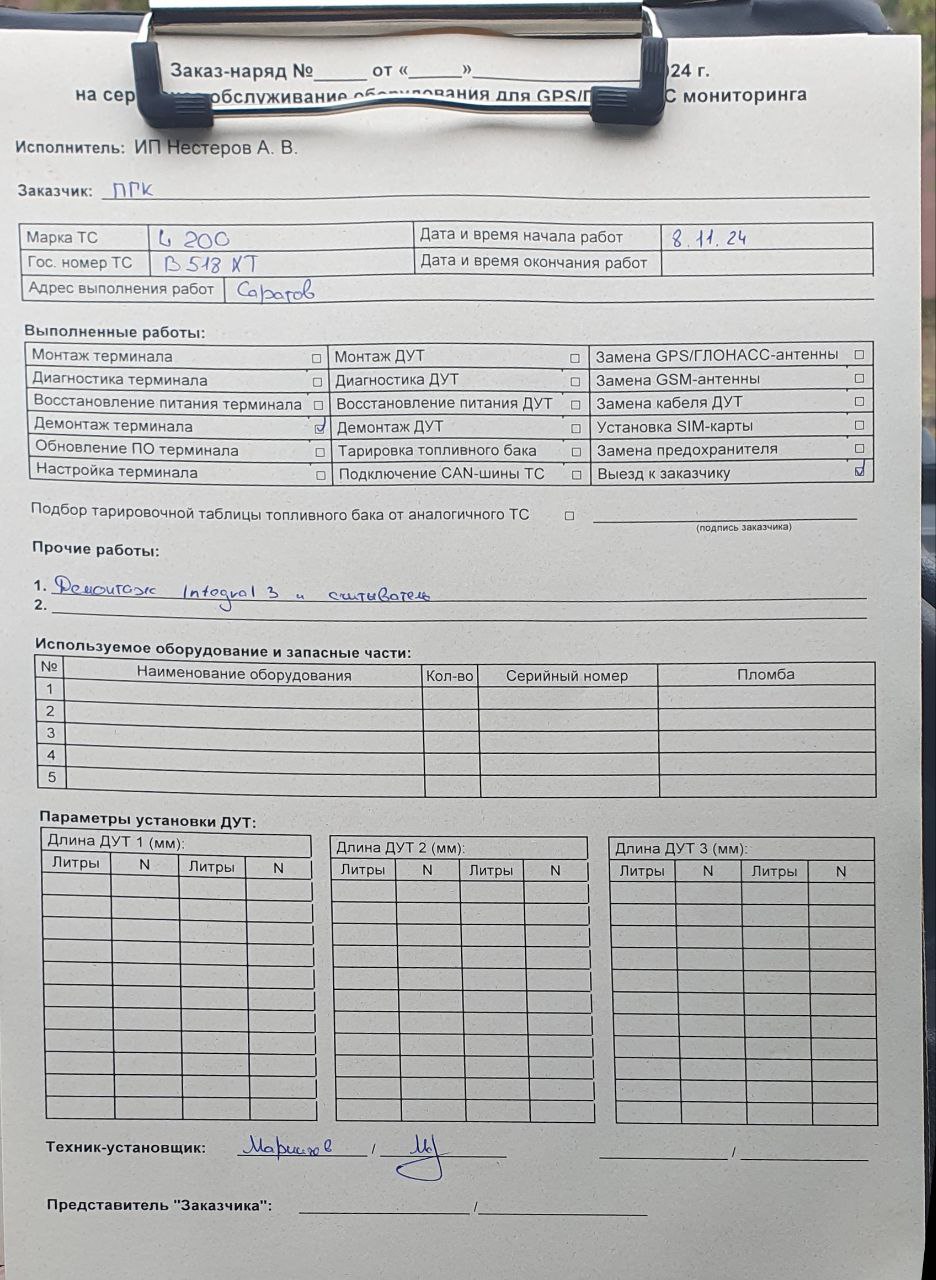 Заказ-наряд №_____ от «_____»_______________ 24 г.
на сер обслуживание оборудования для GPS/Г С мониторинга
Исполнитель: ИП Нестеров А. В.
Заказчик: ПГК
Марка ТС L 200 Дата и время начала работ 8.11.24
Гос. номер ТС В 518 ХТ Дата и время окончания работ
Адрес выполнения работ Саратов
Выполненные работы:
Монтаж терминала ☐ Монтаж ДУТ ☐ Замена GPS/ГЛОНАСС-антенны ☐
Диагностика терминала ☐ Диагностика ДУТ ☐ Замена GSM-антенны ☐
Восстановление питания терминала ☐ Восстановление питания ДУТ ☐ Замена кабеля ДУТ ☐
Демонтаж терминала ☑ Демонтаж ДУТ ☐ Установка SIM-карты ☐
Обновление ПО терминала ☐ Тарировка топливного бака ☐ Замена предохранителя ☐
Настройка терминала ☐ Подключение CAN-шины ТС ☐ Выезд к заказчику ☑
Подбор тарировочной таблицы топливного бака от аналогичного ТС ☐
(подпись заказчика)
Прочие работы:
1. Демонтаж Integral 3 и считыватель
2.
Используемое оборудование и запасные части:
№ Наименование оборудования Кол-во Серийный номер Пломба
1
2
3
4
5
Параметры установки ДУТ:
Длина ДУТ 1 (мм): Длина ДУТ 2 (мм): Длина ДУТ 3 (мм):
Литры N Литры N Литры N Литры N Литры N Литры N
Техник-установщик: / /
Представитель "Заказчика": /